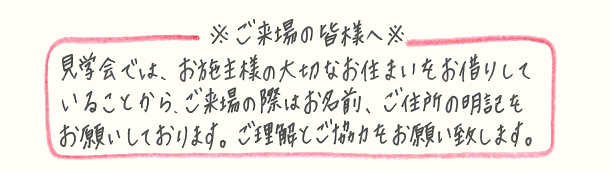 ※ご来場の皆様へ※
見学会では、お施主様の大切なお住まいをお借りして
いることから、ご来場の際はお名前、ご住所の明記を
お願いしております。ご理解とご協力をお願い致します。